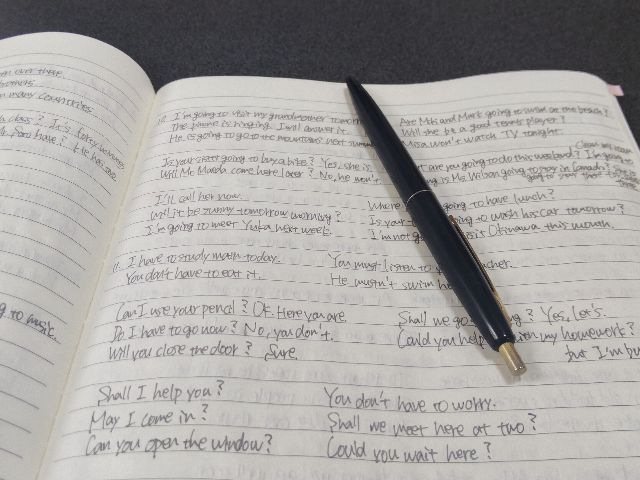 over there.
brothers.
many countries
class? It's forty minutes
have? He has one
to music.
I'm going to visit my grandmother tomorrow.
The phone is ringing. I will answer it.
He is going to go to the mountains next summer
Is your sister going to buy a bike? Yes, she is.
Will Ms. Maeda come here later? No, he won't.
I'll call her now.
Will it be sunny tomorrow morning?
I'm going to meet Yuka next week.
I have to study math today.
You don't have to eat it.
Can I use your pencil? OK. Here you are.
Do I have to go now? No, you don't.
Will you close the door? Sure.
Shall I help you?
May I come in?
Can you open the window?
Are Miki and Mark going to swim at the beach?
Will the be a good tennis player?
Misa won't watch TV tonight.
are you going to do this weekend? I'm going to
Clean my room
long is Ms. Wilson going to stay in Canada?
Where going to have lunch?
Is your going to wash his car tomorrow?
I'm not visit Okinawa this month.
You must listen to teacher.
He mustn't swim here
Shall we go Yes, let's.
Could you help with my homework?
but I'm bu
You don't have to worry.
Shall we meet here at two?
Could you wait here?